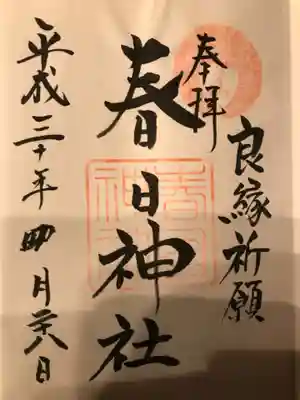 良縁祈願
奉拝
春日神社
平成三十年 月廿八日